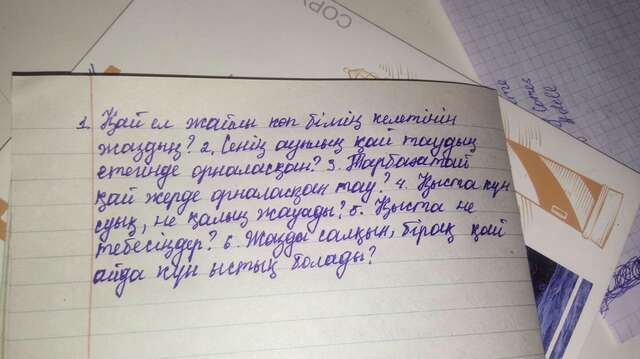 COPY
1. Қай ел жайлы көп білгің келетінін
жаздың? 2. Сенің ауылың қай таудың
етегінде орналасқан? 3. Тарбағатай
қай жерде орналасқан тау? 4. Қыста күн
суық, не қалың жауады? 5. Қыста не
тебесіңдер? 6. Жазда салқын, бірақ қай
айда күн ыстық болады?